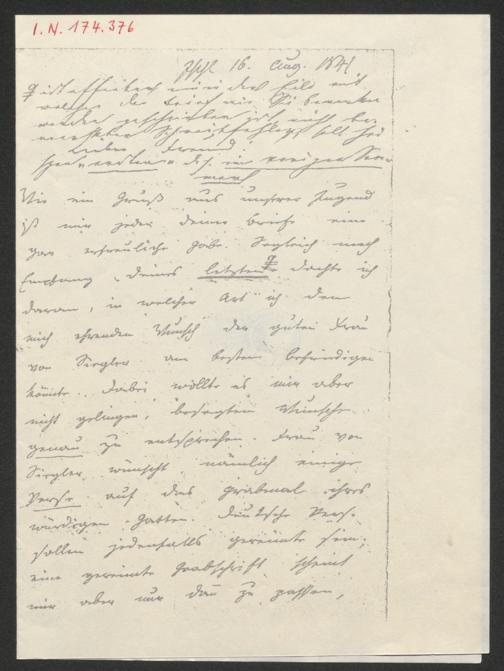 I.N. 174.376
Ischl 16. Aug. 1841
ist offenbar nur in der Eile mit
welcher der Brief wie Sie bemerken
worden geschrieben ist nicht be-
merkter Schreibfehler, soll
Lieber Freund!
im vorigen
Wie ein Gruß aus unsrer Jugend
ist mir jeder deiner Briefe eine
gar erfreuliche Gabe. Sogleich nach
Empfang deines letzten dachte ich
daran, in welcher Art ich den
mich ehrenden Wunsch der guten Frau
von Siegler am besten befriedigen
könnte. Dabei wollte es mir aber
nicht gelingen, besagtem Wunsche
genau zu entsprechen. Frau von
Siegler wünscht nämlich einige
Verse auf das Grabmal ihres
würdigen Gatten. Deutsche Verse
sollen jedenfalls gereimt sein;
eine gereimte Grabschrift scheint
mir aber nur dann zu passen,